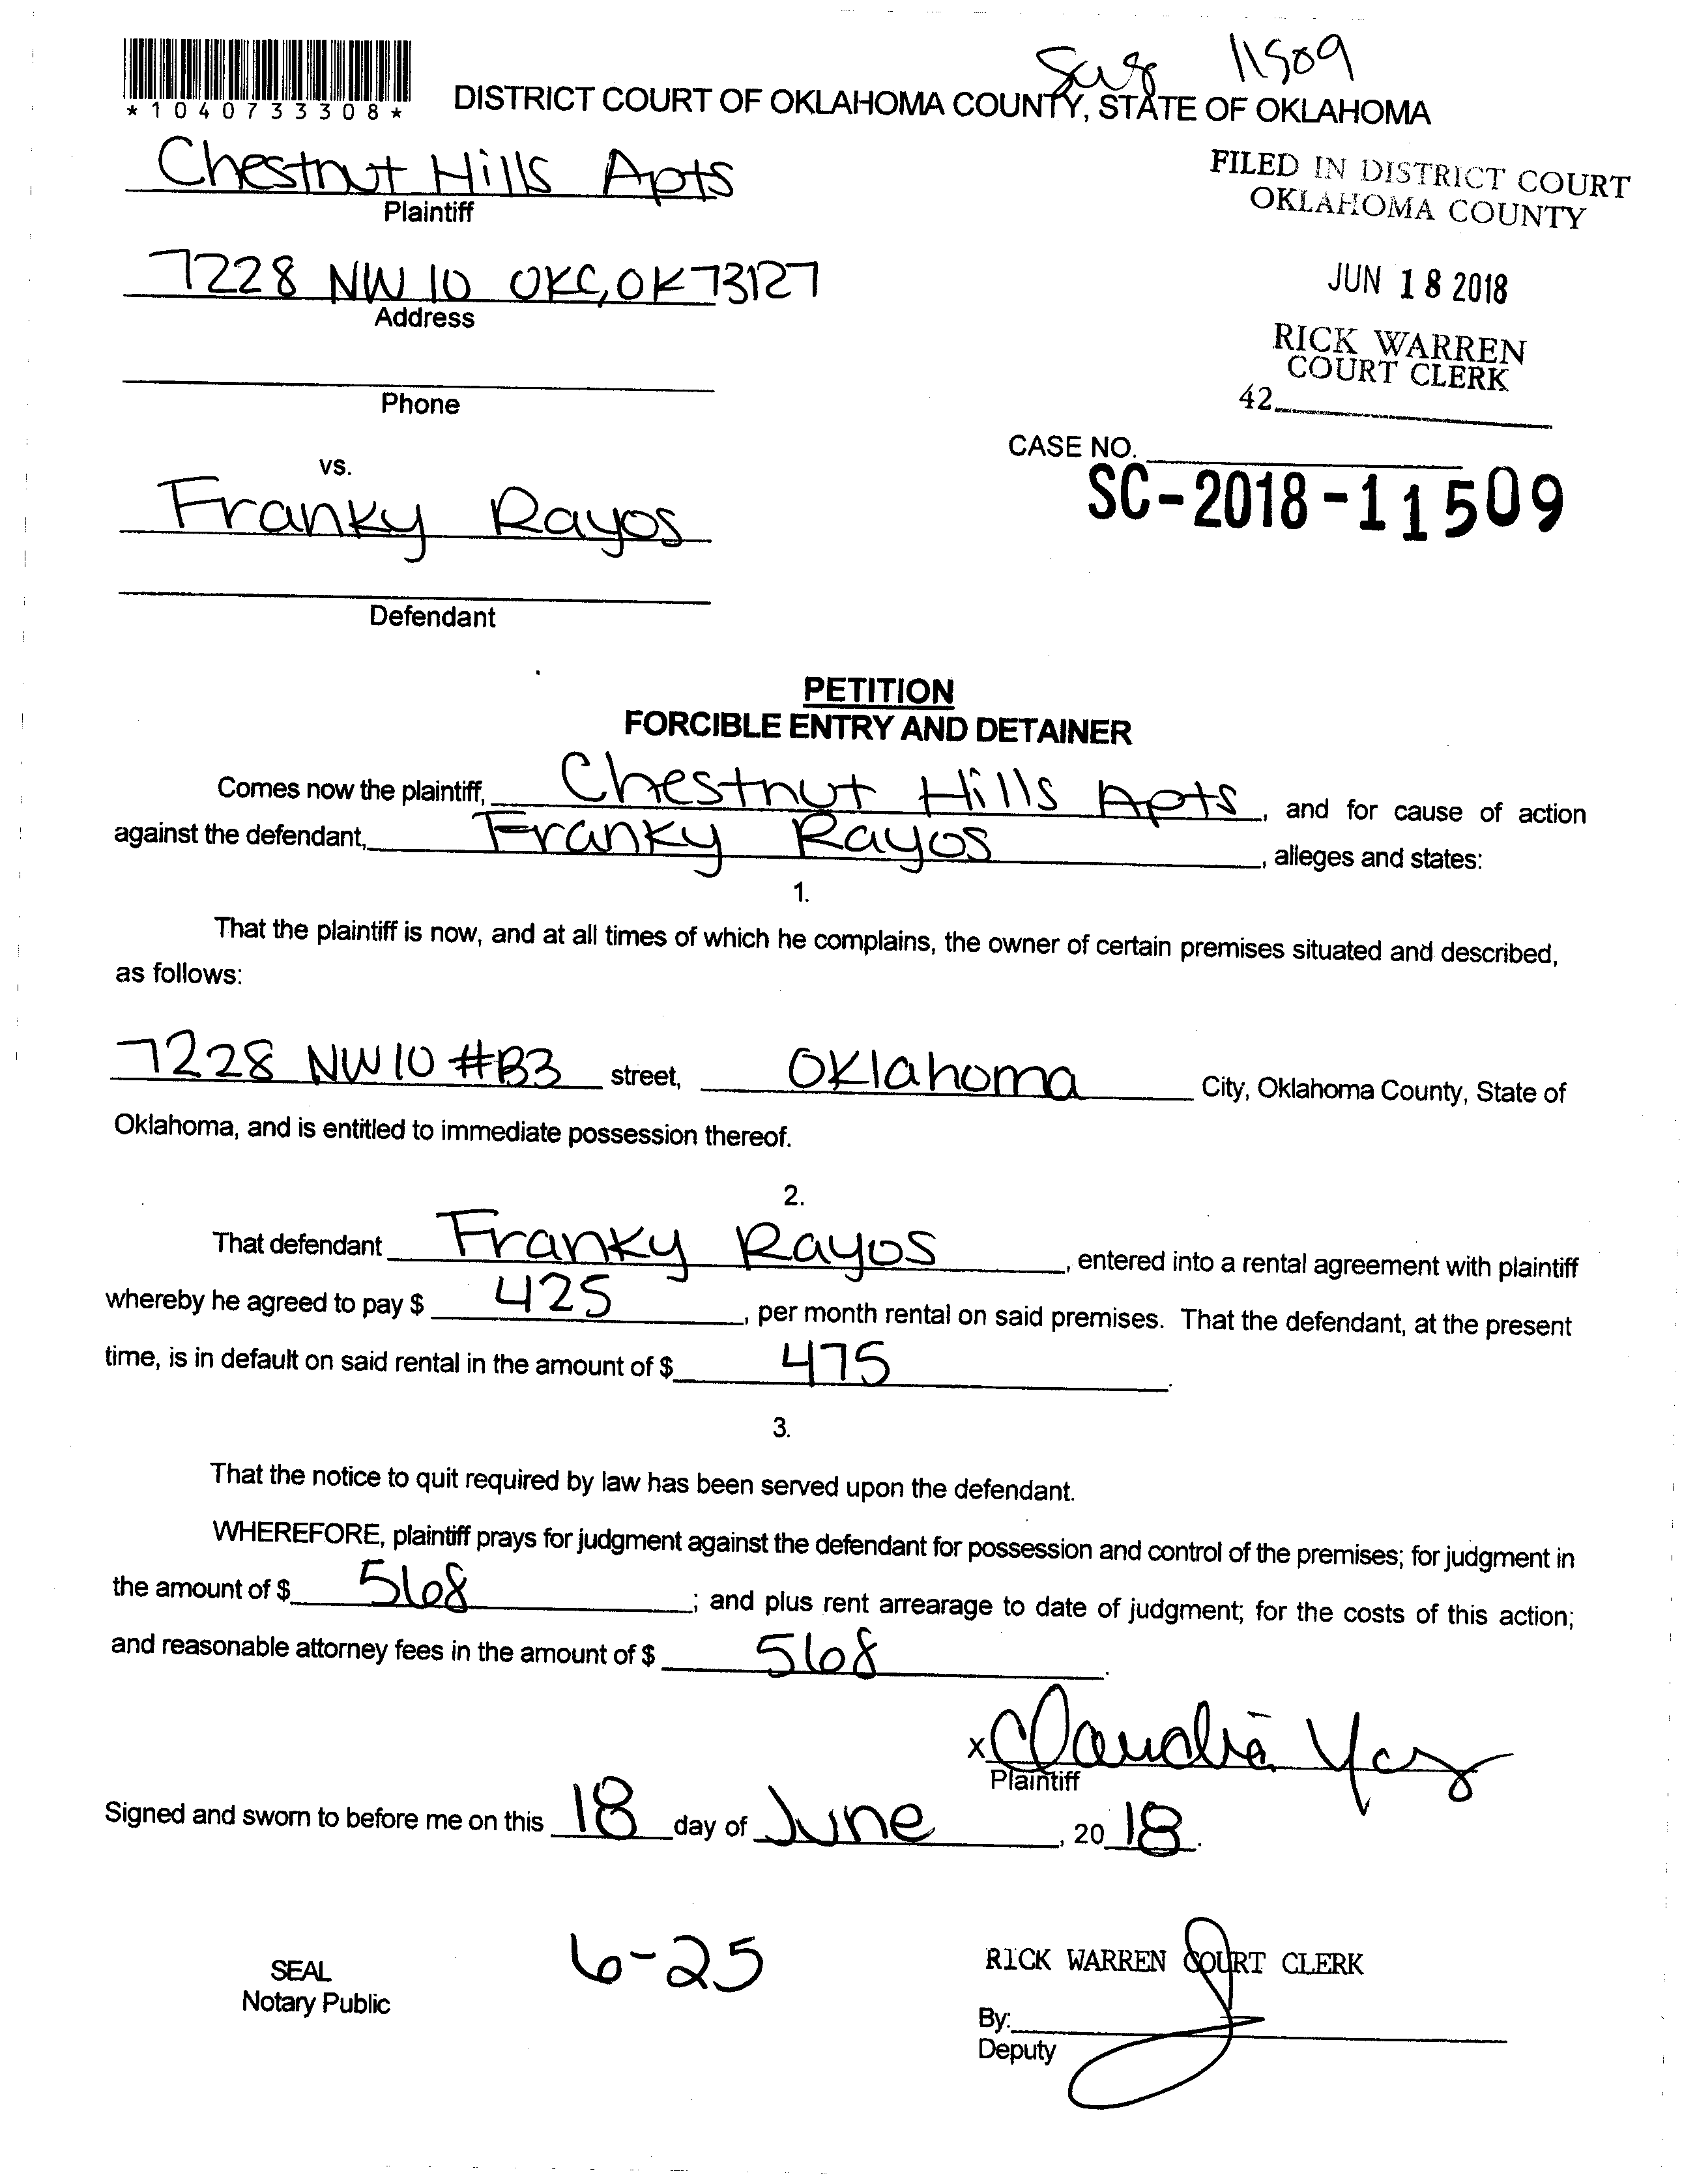 11509
*1040733308*
DISTRICT COURT OF OKLAHOMA COUNTY, STATE OF OKLAHOMA
Chestnut Hills Apts
Plaintiff
FILED IN DISTRICT COURT
OKLAHOMA COUNTY
7228 NW 10 OKC, OK 73127
Address
JUN 18 2018
RICK WARREN
COURT CLERK
42
Phone
CASE NO.
SC-2018-11509
vs.
Franky Rayos
Defendant
PETITION
FORCIBLE ENTRY AND DETAINER
Comes now the plaintiff, Chestnut Hills Apts, and for cause of action
against the defendant, Franky Rayos, alleges and states:
1.
That the plaintiff is now, and at all times of which he complains, the owner of certain premises situated and described,
as follows:
7228 NW 10 #B3 street, Oklahoma City, Oklahoma County, State of
Oklahoma, and is entitled to immediate possession thereof.
2.
That defendant Franky Rayos, entered into a rental agreement with plaintiff
whereby he agreed to pay $ 425, per month rental on said premises. That the defendant, at the present
time, is in default on said rental in the amount of $ 475.
3.
That the notice to quit required by law has been served upon the defendant.
WHEREFORE, plaintiff prays for judgment against the defendant for possession and control of the premises; for judgment in
the amount of $ 568; and plus rent arrearage to date of judgment; for the costs of this action;
and reasonable attorney fees in the amount of $ 568.
x Claudia
Plaintiff
Signed and sworn to before me on this 18 day of June, 2018.
SEAL
Notary Public
6-25
RICK WARREN COURT CLERK
By:
Deputy